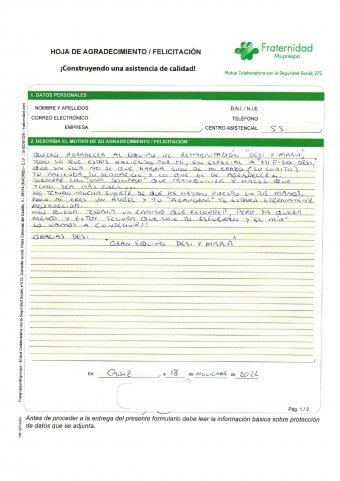 HOJA DE AGRADECIMIENTO / FELICITACIÓN
¡Construyendo una asistencia de calidad!
Fraternidad
Muprespa
Mutua Colaboradora con la Seguridad Social, 275
1. DATOS PERSONALES
NOMBRE Y APELLIDOS
D.N.I. / N.I.E.
CORREO ELECTRÓNICO
TELÉFONO
EMPRESA
CENTRO ASISTENCIAL SS.
2. DESCRIBA EL MOTIVO DE SU AGRADECIMIENTO / FELICITACIÓN
QUIERO AGRADECER AL EQUIPO DE REHABILITACIÓN DESI Y MARÍA,
TODO LO QUE ESTÁIS HACIENDO POR MI, EN ESPECIAL A MI FISIO DESI,
QUE SIN ELLA NO SE QUE HABRÍA SIDO DE MI BRAZO (SU CODITO)
TU PACIENCIA, TU DEDICACIÓN Y LO QUE ES DE AGRADECER
SIEMPRE CON UNA SONRISA QUE TRANQUILIZA Y HACES QUE
TODO SEA MÁS FÁCIL.
HE TENIDO MUCHA SUERTE DE QUE ME HAYAN PUESTO EN TUS MANOS,
PARA MI ERES UN ÁNGEL Y TU TE ESTARÁ ETERNAMENTE
AGRADECIDA.
NOS QUEDA TODAVÍA UN CAMINO QUE RECORRER PERO YA QUEDA
MENOS Y ESTOY SEGURA QUE CON TU ESFUERZO Y EL MIO
LO VAMOS A CONSEGUIR!!
GRACIAS DESI
GRAN EQUIPO DESI Y MARÍA
En CADIZ, a 18 de NOVIEMBRE de 2022
Pág. 1 / 2
Antes de proceder a la entrega del presente formulario debe leer la información básica sobre protección
de datos que se adjunta.